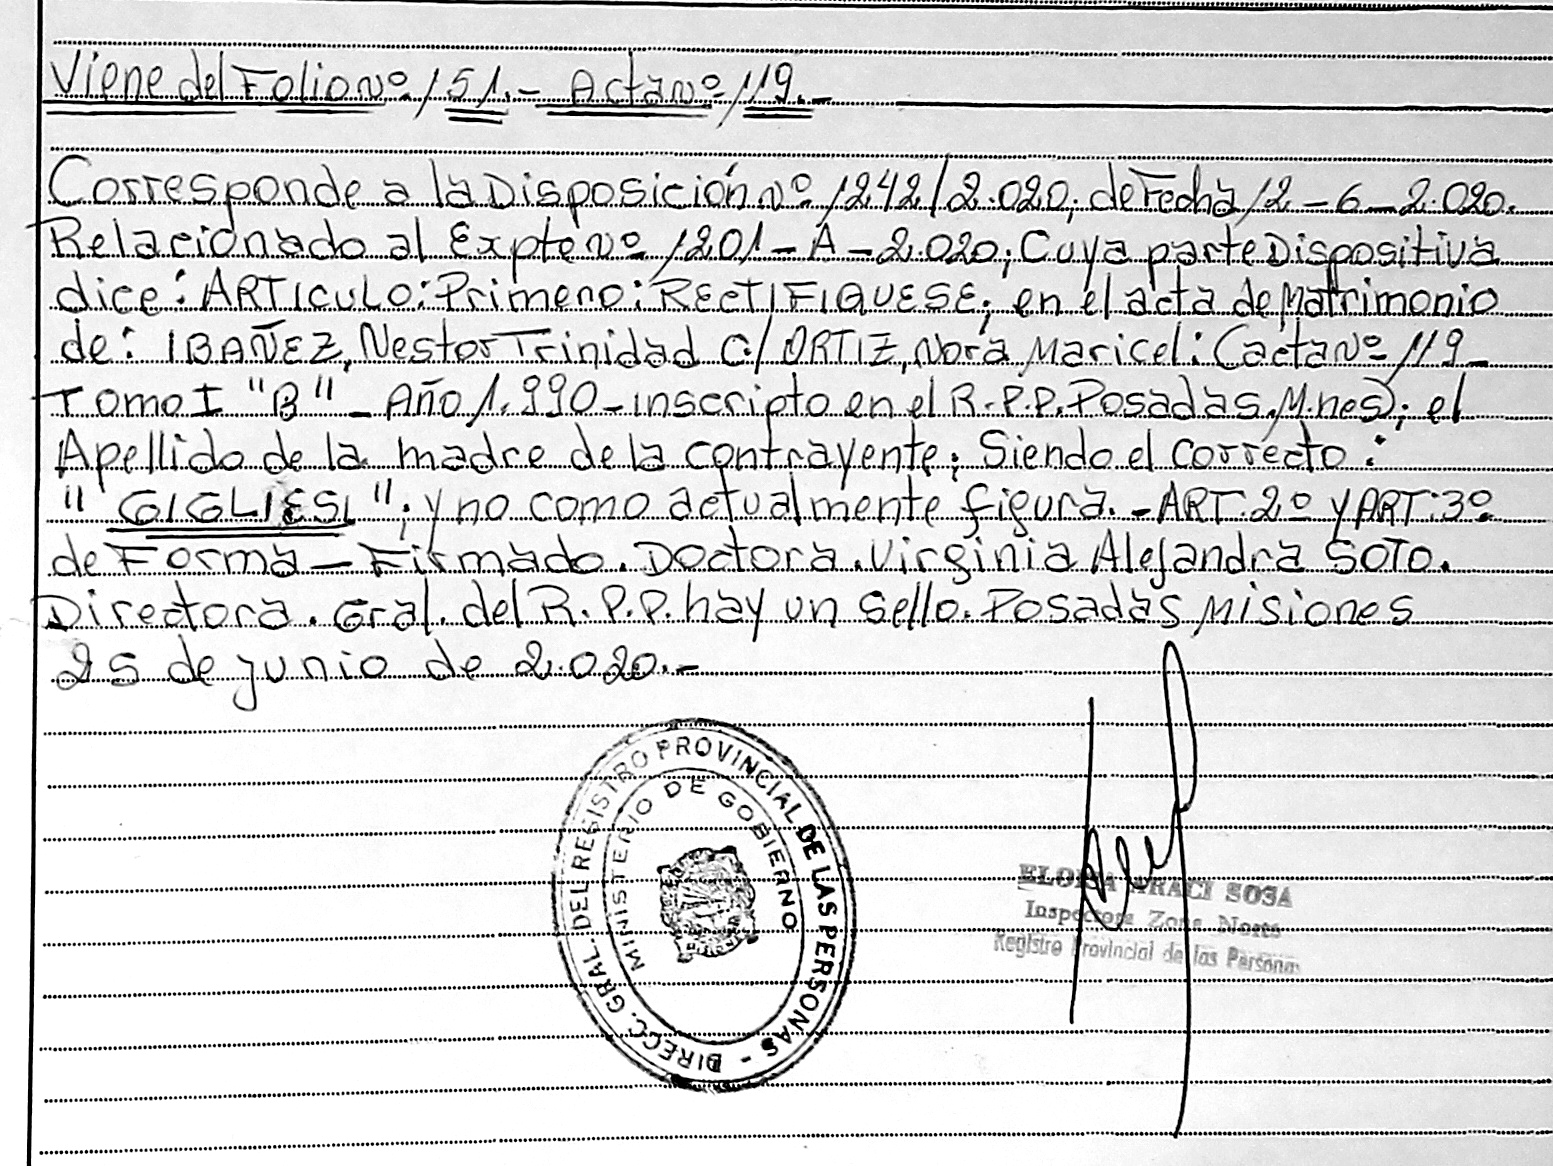 Viene del Folio nº 151.- Acta nº 119.-
Corresponde a la Disposición nº 1242/2.020; de Fecha 12-6-2.020.
Relacionado al Expte nº 1201-A-2.020; Cuya parte Dispositiva
dice: ARTICULO: Primero: RECTIFIQUESE; en el acta de Matrimonio
de: IBAÑEZ, Nestor Trinidad C/ ORTIZ, Nora Maricel: (acta nº 119-
Tomo I "B" - Año 1.990-inscripto en el R.P.P. Posadas. M.nes); el
Apellido de la madre de la contrayente; Siendo el correcto:
"GIGLIESI"; y no como actualmente figura.-ART.2º y ART:3º
de Forma - Firmado. Doctora. Virginia Alejandra SOTO.
Directora. Gral. del R.P.P. hay un Sello. Posadas Misiones
25 de junio de 2.020.-
DIRECC. GRAL. DEL REGISTRO PROVINCIAL DE LAS PERSONAS -
MINISTERIO DE GOBIERNO
ELOISA ARACI SOSA
Inspectora Zona Norte
Registro Provincial de las Personas